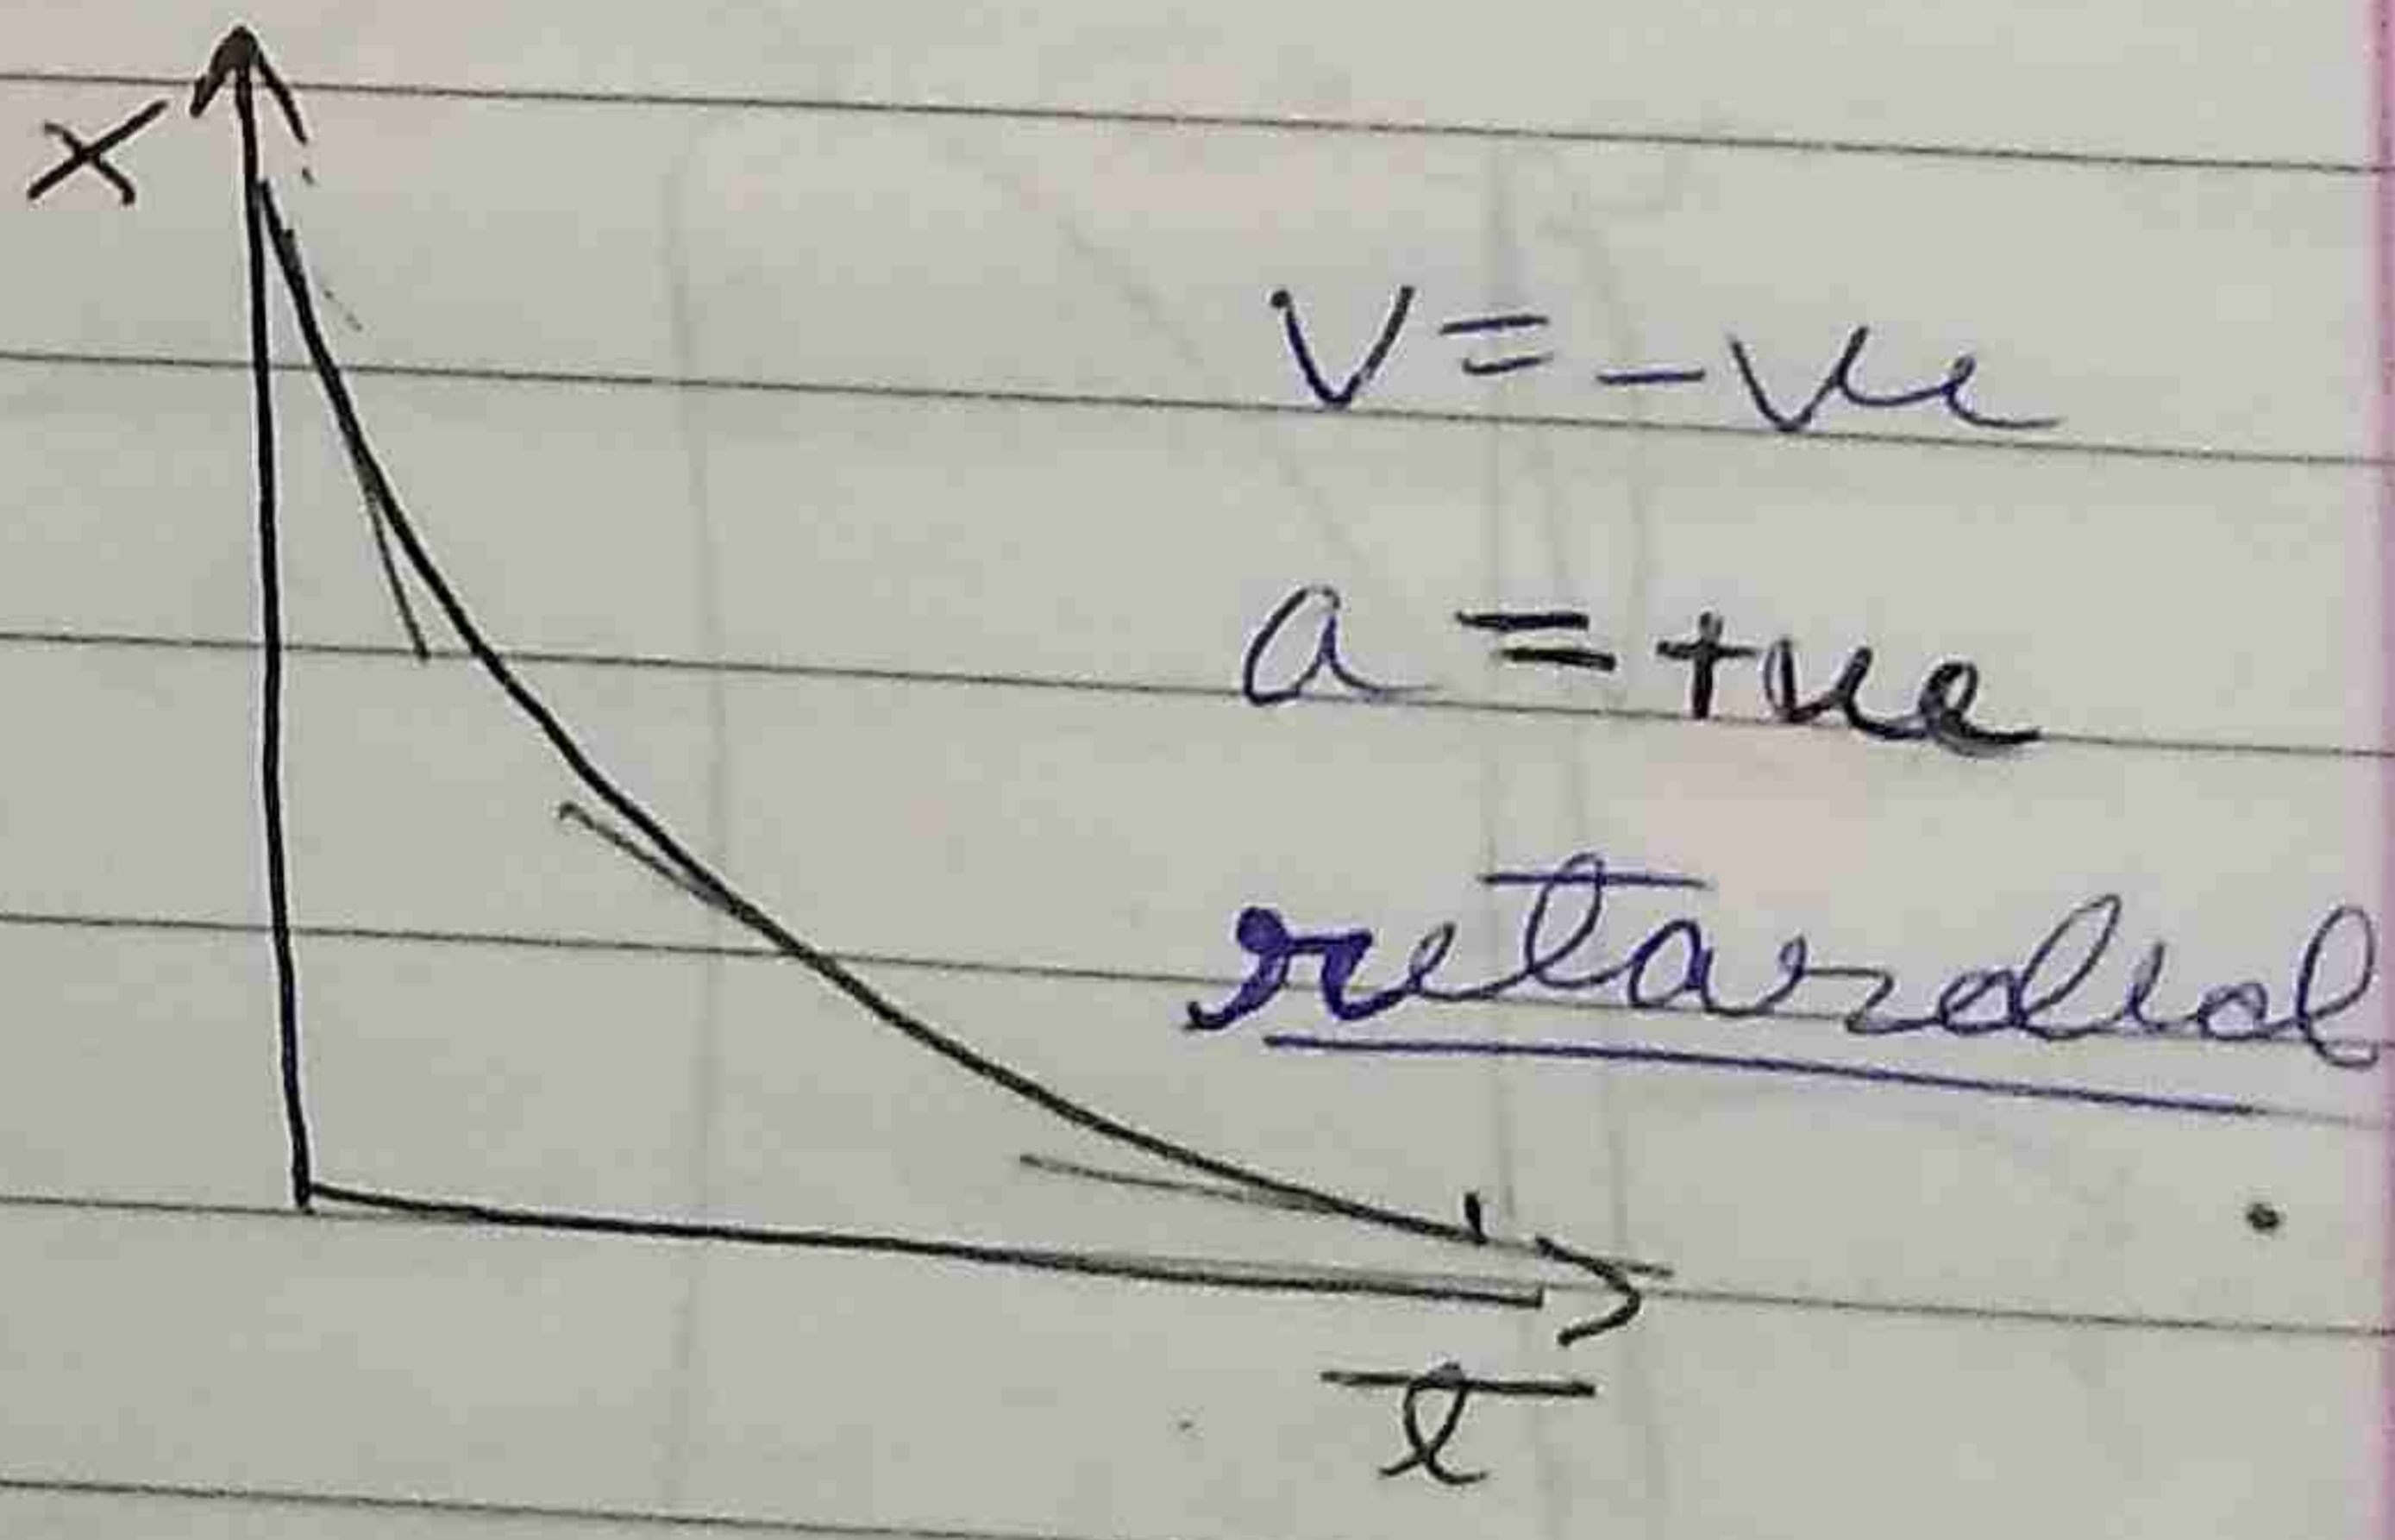 X
V = -ve
a = +ve
retarded
t